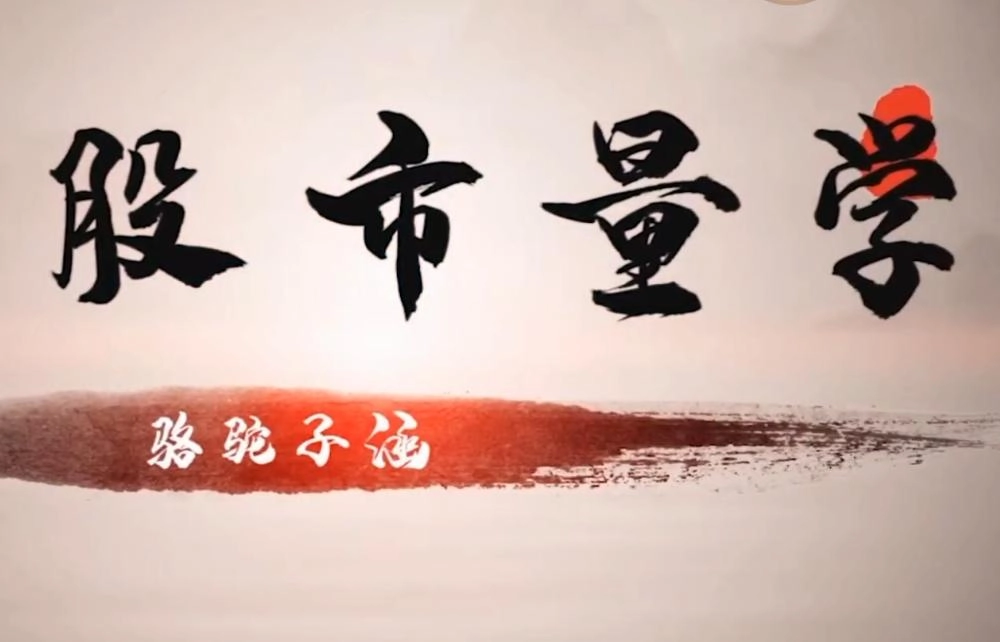 股市量学
骆驼子涵